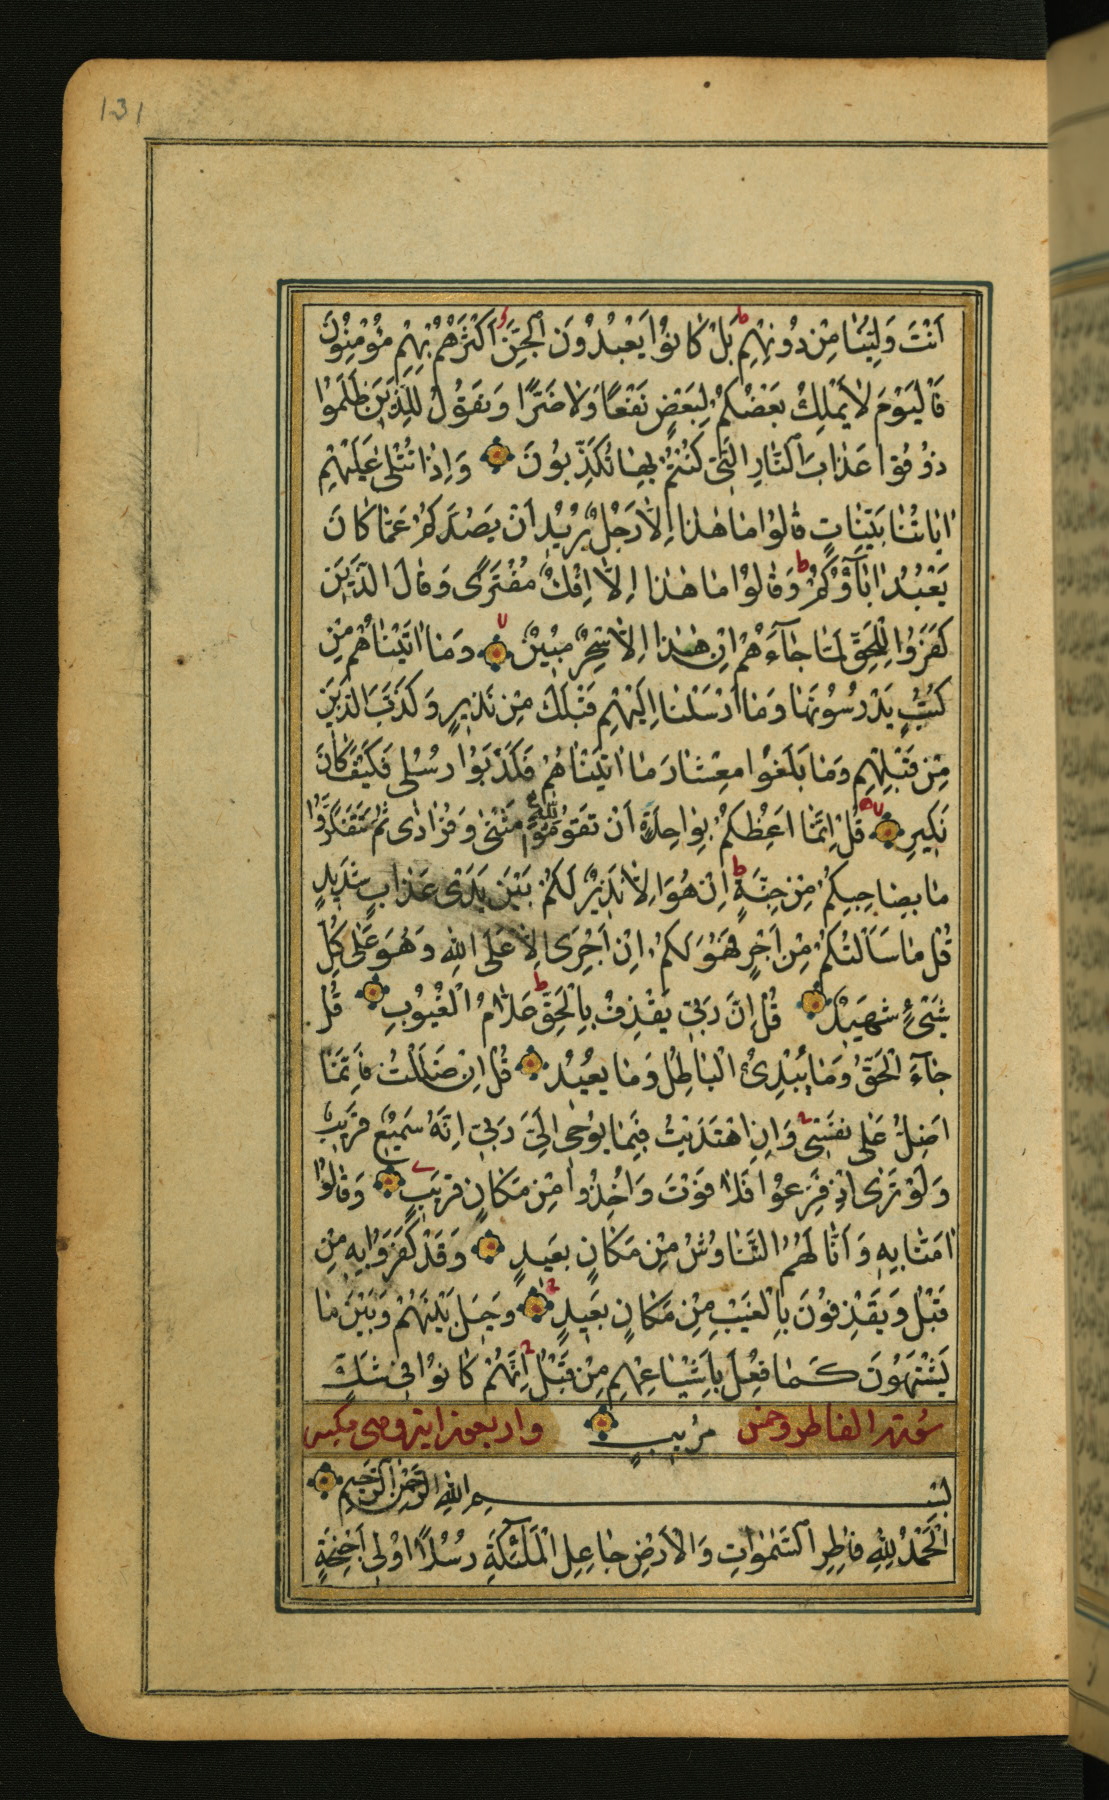 131
اَنْتَ وَلِيُّنَا مِنْ دُونِهِمْ ط بَلْ كَانُوا يَعْبُدُونَ الْجِنَّ اَكْثَرُهُمْ بِهِمْ مُؤْمِنُونَ
فَالْيَوْمَ لَا يَمْلِكُ بَعْضُكُمْ لِبَعْضٍ نَفْعًا وَلَا ضَرًّا وَنَقُولُ لِلَّذِينَ ظَلَمُوا
ذُوقُوا عَذَابَ النَّارِ الَّتِي كُنْتُمْ بِهَا تُكَذِّبُونَ وَاِذَا تُتْلٰى عَلَيْهِمْ
اٰيَاتُنَا بَيِّنَاتٍ قَالُوا مَا هٰذَا اِلَّا رَجُلٌ يُرِيدُ اَنْ يَصُدَّكُمْ عَمَّا كَانَ
يَعْبُدُ اٰبَآؤُكُمْ ط وَقَالُوا مَا هٰذَا اِلَّا اِفْكٌ مُفْتَرًى وَقَالَ الَّذِينَ
كَفَرُوا لِلْحَقِّ لَمَّا جَآءَهُمْ اِنْ هٰذَا اِلَّا سِحْرٌ مُبِينٌ وَمَا اٰتَيْنَاهُمْ مِنْ
كُتُبٍ يَدْرُسُونَهَا وَمَا اَرْسَلْنَا اِلَيْهِمْ قَبْلَكَ مِنْ نَذِيرٍ وَكَذَّبَ الَّذِينَ
مِنْ قَبْلِهِمْ وَمَا بَلَغُوا مِعْشَارَ مَا اٰتَيْنَاهُمْ فَكَذَّبُوا رُسُلِي فَكَيْفَ كَانَ
نَكِيرِ قُلْ اِنَّمَا اَعِظُكُمْ بِوَاحِدَةٍ اَنْ تَقُومُوا لِلّٰهِ مَثْنٰى وَفُرَادٰى ثُمَّ تَتَفَكَّرُوا
مَا بِصَاحِبِكُمْ مِنْ جِنَّةٍ ط اِنْ هُوَ اِلَّا نَذِيرٌ لَكُمْ بَيْنَ يَدَيْ عَذَابٍ شَدِيدٍ
قُلْ مَا سَاَلْتُكُمْ مِنْ اَجْرٍ فَهُوَ لَكُمْ اِنْ اَجْرِيَ اِلَّا عَلَى اللّٰهِ وَهُوَ عَلٰى كُلِّ
شَيْءٍ شَهِيدٌ قُلْ اِنَّ رَبِّي يَقْذِفُ بِالْحَقِّ ط عَلَّامُ الْغُيُوبِ قُلْ
جَآءَ الْحَقُّ وَمَا يُبْدِئُ الْبَاطِلُ وَمَا يُعِيدُ قُلْ اِنْ ضَلَلْتُ فَاِنَّمَا
اَضِلُّ عَلٰى نَفْسِي وَاِنِ اهْتَدَيْتُ فَبِمَا يُوحٰى اِلَيَّ رَبِّي اِنَّهُ سَمِيعٌ قَرِيبٌ
وَلَوْ تَرٰى اِذْ فَزِعُوا فَلَا فَوْتَ وَاُخِذُوا مِنْ مَكَانٍ قَرِيبٍ وَقَالُوا
اٰمَنَّا بِهِ وَاَنّٰى لَهُمُ التَّنَاوُشُ مِنْ مَكَانٍ بَعِيدٍ وَقَدْ كَفَرُوا بِهِ مِنْ
قَبْلُ وَيَقْذِفُونَ بِالْغَيْبِ مِنْ مَكَانٍ بَعِيدٍ وَحِيلَ بَيْنَهُمْ وَبَيْنَ مَا
يَشْتَهُونَ كَمَا فُعِلَ بِاَشْيَاعِهِمْ مِنْ قَبْلُ اِنَّهُمْ كَانُوا فِي شَكٍّ
سورة الفاطر وخمس مُرِيبٍ واربعون اية وهى مكية
بِسْمِ اللّٰهِ الرَّحْمٰنِ الرَّحِيمِ
اَلْحَمْدُ لِلّٰهِ فَاطِرِ السَّمٰوَاتِ وَالْاَرْضِ جَاعِلِ الْمَلٰئِكَةِ رُسُلًا اُولِي اَجْنِحَةٍ